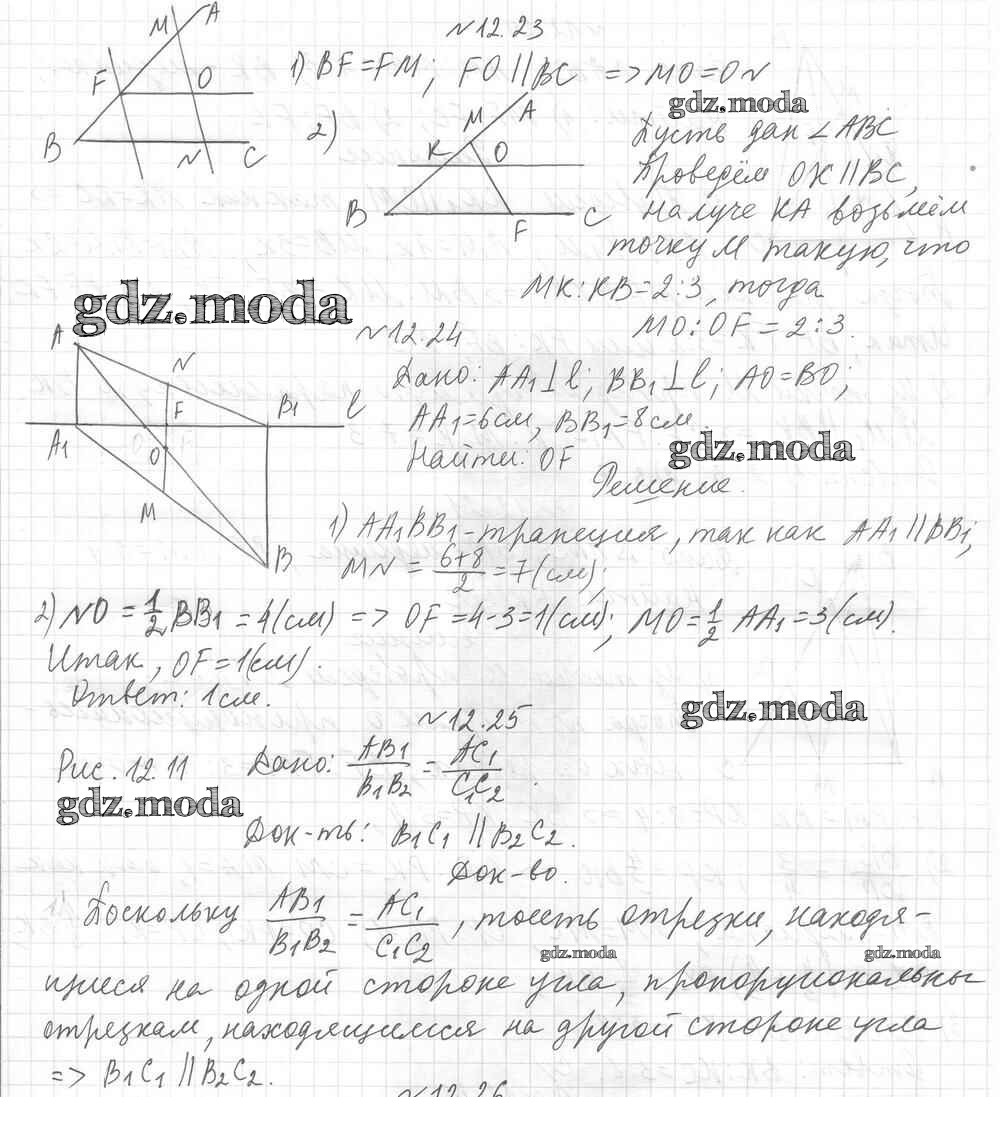 №12.23
M A
F O
B N C
1) BF=FM; FO||BC => MO=ON
gdz.moda
2)
M A
K O
B F C
Пусть дан ∠ABC
Проведём OK||BC,
на луче KA возьмём
точку M такую, что
MK:KB=2:3, тогда
MO:OF=2:3.
gdz.moda
№12.24
A N
F B1 l
A1 O
M
B
Дано: AA1⊥l; BB1⊥l; AO=BO;
AA1=6см, BB1=8см.
gdz.moda
Найти: OF
Решение.
1) AA1BB1-трапеция, так как AA1||BB1;
MN = 6+8/2 = 7(см);
2) NO = 1/2 BB1 = 4(см) => OF = 4-3=1(см); MO=1/2 AA1=3(см).
Итак, OF=1(см).
Ответ: 1см.
gdz.moda
№12.25
Рис. 12.11 Дано: AB1/B1B2 = AC1/C1C2.
gdz.moda
Док-ть: B1C1 || B2C2.
Док-во.
Поскольку AB1/B1B2 = AC1/C1C2, то есть отрезки, находя-
gdz.moda gdz.moda
щиеся на одной стороне угла, пропорциональны
отрезкам, находящимся на другой стороне угла
=> B1C1 || B2C2.
№12.26